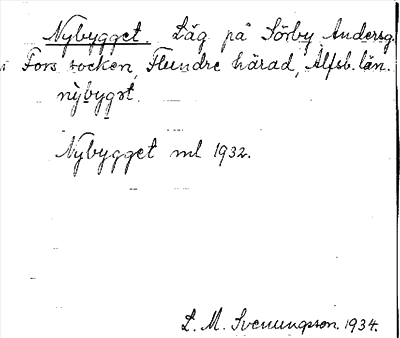 Nybygget. Låg på Sörby Anders g.
i Fors socken, Flundre härad, Älfsb. län.
nỳbygət.
Nybygget ml 1932.
L. M. Svenungsson. 1934.